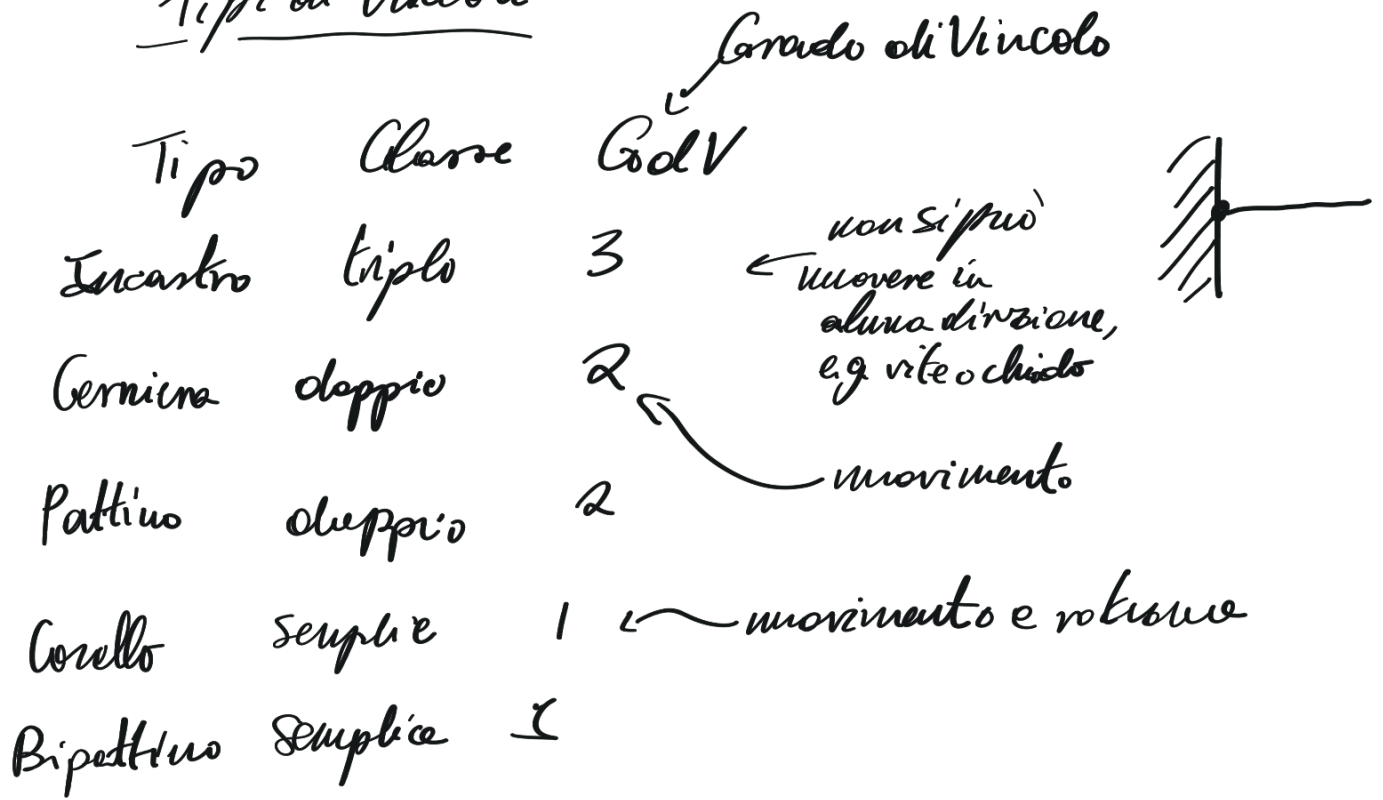 Tipi di Vincoli
Grado di Vincolo
Tipo Classe GdV
Incastro triplo 3
non si può
muovere in
alcuna direzione,
e.g. vite o chiodo
Cerniera doppio 2
movimento
Pattino doppio 2
Carello semplice 1
movimento e rotazione
Bipattino semplice 1